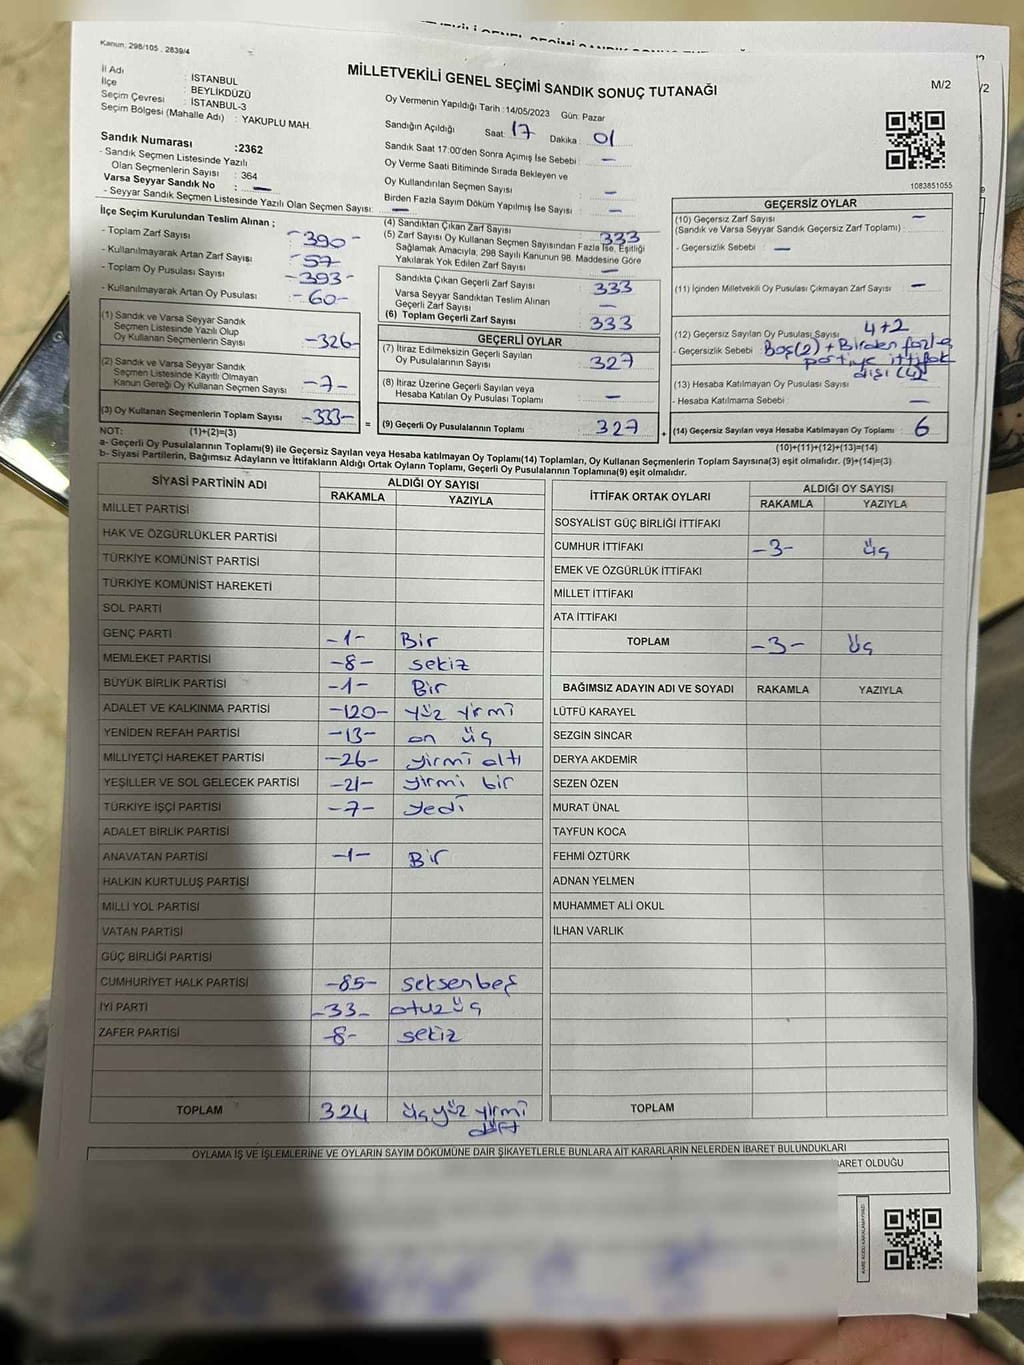 Kanun: 298/105 , 2839/4
MİLLETVEKİLİ GENEL SEÇİMİ SANDIK SONUÇ TUTANAĞI
M/2
İl Adı : İSTANBUL
İlçe : BEYLİKDÜZÜ
Seçim Çevresi : İSTANBUL-3
Seçim Bölgesi (Mahalle Adı) : YAKUPLU MAH.
Sandık Numarası :2362
- Sandık Seçmen Listesinde Yazılı
Olan Seçmenlerin Sayısı : 364
Varsa Seyyar Sandık No : —
- Seyyar Sandık Seçmen Listesinde Yazılı Olan Seçmen Sayısı: —
Oy Vermenin Yapıldığı Tarih : 14/05/2023 Gün: Pazar
Sandığın Açıldığı Saat: 17 Dakika : 01
Sandık Saat 17:00'den Sonra Açımış İse Sebebi : —
Oy Verme Saati Bitiminde Sırada Bekleyen ve
Oy Kullandırılan Seçmen Sayısı : —
Birden Fazla Sayım Döküm Yapılmış İse Sayısı : —
1083851055
İlçe Seçim Kurulundan Teslim Alınan ;
- Toplam Zarf Sayısı : -390-
- Kullanılmayarak Artan Zarf Sayısı : -57
- Toplam Oy Pusulası Sayısı : -393-
- Kullanılmayarak Artan Oy Pusulası : -60-
(1) Sandık ve Varsa Seyyar Sandık
Seçmen Listesinde Yazılı Olup
Oy Kullanan Seçmenlerin Sayısı : -326-
(2) Sandık ve Varsa Seyyar Sandık
Seçmen Listesinde Kayıtlı Olmayan
Kanun Gereği Oy Kullanan Seçmen Sayısı : -7-
(3) Oy Kullanan Seçmenlerin Toplam Sayısı : -333-
(1)+(2)=(3)
(4) Sandıktan Çıkan Zarf Sayısı : 333
(5) Zarf Sayısı Oy Kullanan Seçmen Sayısından Fazla İse, Eşitliği
Sağlamak Amacıyla, 298 Sayılı Kanunun 98. Maddesine Göre
Yakılarak Yok Edilen Zarf Sayısı : —
Sandıkta Çıkan Geçerli Zarf Sayısı : 333
Varsa Seyyar Sandıktan Teslim Alınan
Geçerli Zarf Sayısı : —
(6) Toplam Geçerli Zarf Sayısı : 333
GEÇERLİ OYLAR
(7) İtiraz Edilmeksizin Geçerli Sayılan
Oy Pusulalarının Sayısı : 327
(8) İtiraz Üzerine Geçerli Sayılan veya
Hesaba Katılan Oy Pusulası Toplamı : —
= (9) Geçerli Oy Pusulalarının Toplamı : 327
GEÇERSİZ OYLAR
(10) Geçersiz Zarf Sayısı —
(Sandık ve Varsa Seyyar Sandık Geçersiz Zarf Toplamı) :
- Geçersizlik Sebebi : —
(11) İçinden Milletvekili Oy Pusulası Çıkmayan Zarf Sayısı : —
(12) Geçersiz Sayılan Oy Pusulası Sayısı : 4+2
- Geçersizlik Sebebi : Boş(2) + Birden fazla
partiye ittifak
dışı (4)
(13) Hesaba Katılmayan Oy Pusulası Sayısı :
- Hesaba Katılmama Sebebi : —
+ (14) Geçersiz Sayılan veya Hesaba Katılmayan Oy Toplamı : 6
(10)+(11)+(12)+(13)=(14)
NOT:
a- Geçerli Oy Pusulalarının Toplamı(9) ile Geçersiz Sayılan veya Hesaba katılmayan Oy Toplamı(14) Toplamları, Oy Kullanan Seçmenlerin Toplam Sayısına(3) eşit olmalıdır. (9)+(14)=(3)
b- Siyasi Partilerin, Bağımsız Adayların ve İttifakların Aldığı Ortak Oyların Toplamı, Geçerli Oy Pusulalarının Toplamına(9) eşit olmalıdır.
SİYASİ PARTİNİN ADI ALDIĞI OY SAYISI
RAKAMLA YAZIYLA
MİLLET PARTİSİ
HAK VE ÖZGÜRLÜKLER PARTİSİ
TÜRKİYE KOMÜNİST PARTİSİ
TÜRKİYE KOMÜNİST HAREKETİ
SOL PARTİ
GENÇ PARTİ -1- Bir
MEMLEKET PARTİSİ -8- sekiz
BÜYÜK BİRLİK PARTİSİ -1- Bir
ADALET VE KALKINMA PARTİSİ -120- yüz yirmi
YENİDEN REFAH PARTİSİ -13- on üç
MİLLİYETÇİ HAREKET PARTİSİ -26- yirmi altı
YEŞİLLER VE SOL GELECEK PARTİSİ -21- yirmi bir
TÜRKİYE İŞÇİ PARTİSİ -7- yedi
ADALET BİRLİK PARTİSİ
ANAVATAN PARTİSİ -1- Bir
HALKIN KURTULUŞ PARTİSİ
MİLLİ YOL PARTİSİ
VATAN PARTİSİ
GÜÇ BİRLİĞİ PARTİSİ
CUMHURİYET HALK PARTİSİ -85- seksenbeş
İYİ PARTİ -33- otuzüç
ZAFER PARTİSİ -8- sekiz
TOPLAM 324 üçyüz yirmi
dört
İTTİFAK ORTAK OYLARI ALDIĞI OY SAYISI
RAKAMLA YAZIYLA
SOSYALİST GÜÇ BİRLİĞİ İTTİFAKI
CUMHUR İTTİFAKI -3- üç
EMEK VE ÖZGÜRLÜK İTTİFAKI
MİLLET İTTİFAKI
ATA İTTİFAKI
TOPLAM -3- üç
BAĞIMSIZ ADAYIN ADI VE SOYADI RAKAMLA YAZIYLA
LÜTFÜ KARAYEL
SEZGİN SİNCAR
DERYA AKDEMİR
SEZEN ÖZEN
MURAT ÜNAL
TAYFUN KOCA
FEHMİ ÖZTÜRK
ADNAN YELMEN
MUHAMMET ALİ OKUL
İLHAN VARLIK
TOPLAM
OYLAMA İŞ VE İŞLEMLERİNE VE OYLARIN SAYIM DÖKÜMÜNE DAİR ŞİKAYETLERLE BUNLARA AİT KARARLARIN NELERDEN İBARET BULUNDUKLARI
BARET OLDUĞU